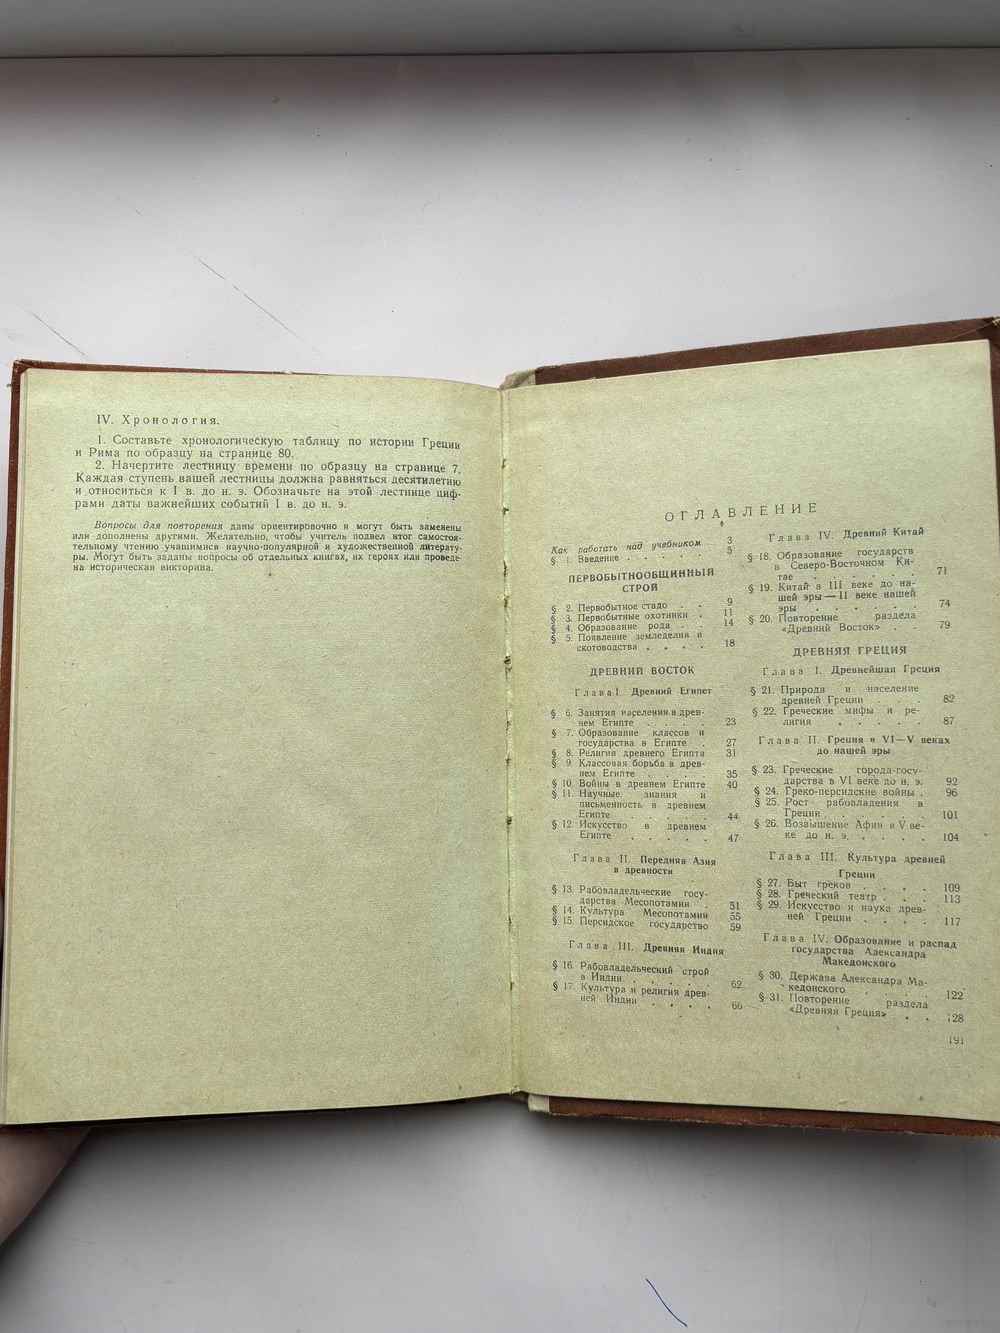 IV. Хронология.
1. Составьте хронологическую таблицу по истории Греции
и Рима по образцу на странице 80.
2. Начертите лестницу времени по образцу на странице 7.
Каждая ступень вашей лестницы должна равняться десятилетию
и относиться к I в. до н. э. Обозначьте на этой лестнице циф-
рами даты важнейших событий I в. до н. э.
Вопросы для повторения даны ориентировочно и могут быть заменены
или дополнены другими. Желательно, чтобы учитель подвел итог самостоя-
тельному чтению учащимися научно-популярной и художественной литерату-
ры. Могут быть заданы вопросы об отдельных книгах, их героях или проведе-
на историческая викторина.
ОГЛАВЛЕНИЕ
Как работать над учебником 3
§ 1. Введение . . . . . . 5
ПЕРВОБЫТНООБЩИННЫЙ
СТРОЙ
§ 2. Первобытное стадо . . 9
§ 3. Первобытные охотники . 11
§ 4. Образование рода . . 14
§ 5. Появление земледелия и
скотоводства . . . . 18
ДРЕВНИЙ ВОСТОК
Глава I. Древний Египет
§ 6. Занятия населения в древ-
нем Египте . . . . 23
§ 7. Образование классов и
государства в Египте . 27
§ 8. Религия древнего Египта 31
§ 9. Классовая борьба в древ-
нем Египте . . . . 35
§ 10. Войны в древнем Египте 40
§ 11. Научные знания и
письменность в древнем
Египте . . . . . 44
§ 12. Искусство в древнем
Египте . . . . . 47
Глава II. Передняя Азия
в древности
§ 13. Рабовладельческие госу-
дарства Месопотамии . 51
§ 14. Культура Месопотамии 55
§ 15. Персидское государство 59
Глава III. Древняя Индия
§ 16. Рабовладельческий строй
в Индии . . . . . 62
§ 17. Культура и религия древ-
ней Индии . . . . 66
Глава IV. Древний Китай
§ 18. Образование государств
в Северо-Восточном Ки-
тае . . . . . . 71
§ 19. Китай в III веке до на-
шей эры — II веке нашей
эры . . . . . . 74
§ 20. Повторение раздела
«Древний Восток» . . 79
ДРЕВНЯЯ ГРЕЦИЯ
Глава I. Древнейшая Греция
§ 21. Природа и население
древней Греции . . . 82
§ 22. Греческие мифы и ре-
лигия . . . . . 87
Глава II. Греция в VI—V веках
до нашей эры
§ 23. Греческие города-госу-
дарства в VI веке до н. э. 92
§ 24. Греко-персидские войны . 96
§ 25. Рост рабовладения в
Греции . . . . . 101
§ 26. Возвышение Афин в V ве-
ке до н. э. . . . . 104
Глава III. Культура древней
Греции
§ 27. Быт греков . . . . 109
§ 28. Греческий театр . . . 113
§ 29. Искусство и наука древ-
ней Греции . . . . 117
Глава IV. Образование и распад
государства Александра
Македонского
§ 30. Держава Александра Ма-
кедонского . . . . 122
§ 31. Повторение раздела
«Древняя Греция» . . 128
191